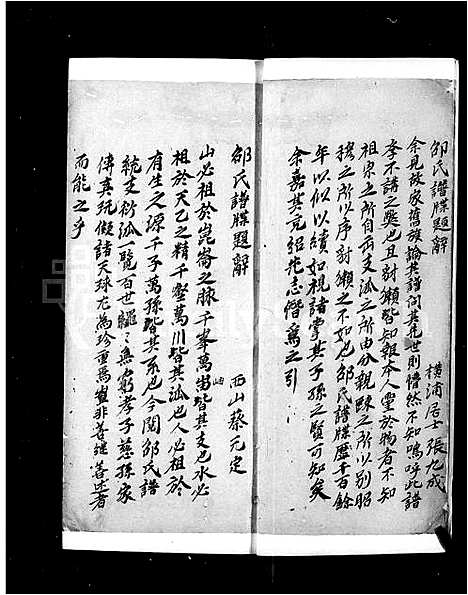 邵氏譜牒題辭
橫浦居士張九成
余見故家舊族論其譜問其先世則懵然不知嗚呼此譜
學不講之獘也且豺獺皆知報本人靈於物者不知
祖宗之所自而支派之所由分親踈之所以別昭
穆之所以序豺獺之不如也邵氏譜牒歷千百餘
年以似以續如視諸掌其子孫之賢可知矣
余嘉其克紹先志僭為之引
邵氏譜牒題辭
西山蔡元定
山必祖於崑崙之脉千峯萬岫皆其支也水必
祖於天乙之精千壑萬川皆其派也人必祖於
有生之源千子萬孫皆其系也今閱邵氏譜
統支衍派一覽百世繩〻無窮孝子慈孫家
傳其玩儗諸天球尤為珍重焉豈非善继善述者
而能之乎